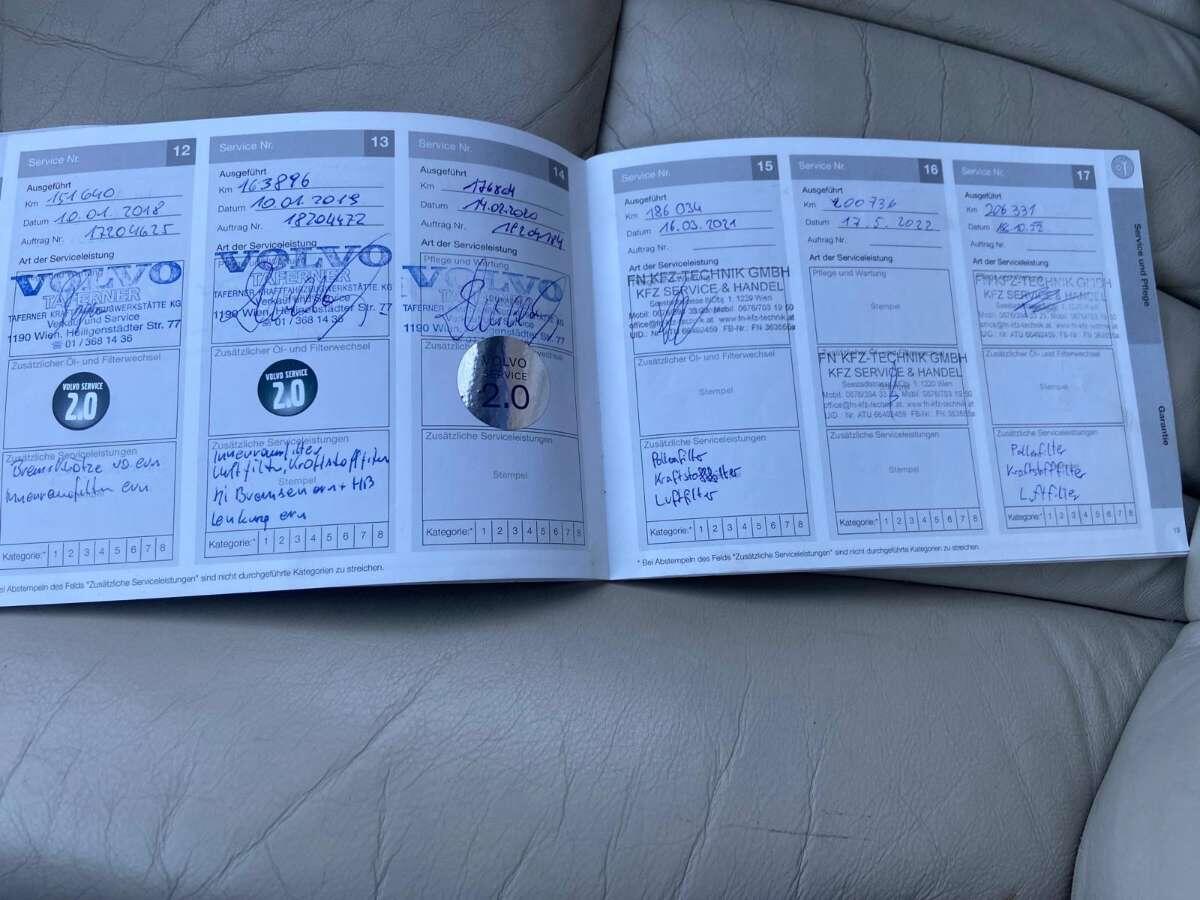 Service Nr. 12
Ausgeführt
Km 151 640
Datum 10.01.2018
Auftrag Nr. 17204625
Art der Serviceleistung
VOLVO
TAFERNER
TAFERNER KRAFTFAHRZEUGWERKSTÄTTE KG
Verkauf und Service
1190 Wien, Heiligenstädter Str. 77
☎ 01 / 368 14 36
Zusätzlicher Öl- und Filterwechsel
VOLVO SERVICE
2.0
Zusätzliche Serviceleistungen
Innenraumfilter ern
Kategorie:* 1 2 3 4 5 6 7 8
Service Nr. 13
Ausgeführt
Km 163896
Datum 10.01.2019
Auftrag Nr. 18204472
Art der Serviceleistung
VOLVO
TAFERNER
TAFERNER KRAFTFAHRZEUGWERKSTÄTTE KG
Verkauf und Service
1190 Wien, Heiligenstädter Str. 77
☎ 01 / 368 14 36
Zusätzlicher Öl- und Filterwechsel
VOLVO SERVICE
2.0
Zusätzliche Serviceleistungen
Innenraumfilter
Luftfilter, Kraftstofffilter
Stempel
hi Bremsen ern + HB
Lenkung ern
Kategorie:* 1 2 3 4 5 6 7 8
Service Nr. 14
Ausgeführt
Km 176804
Datum 14.02.2020
Auftrag Nr.
Art der Serviceleistung
Pflege und Wartung
VOLVO
TAFERNER
TAFERNER KRAFTFAHRZEUGWERKSTÄTTE KG
1190 Wien, Heiligenstädter Str. 77
☎ 01 / 368 14 36
Zusätzlicher Öl- und Filterwechsel
VOLVO
SERVICE
2.0
Zusätzliche Serviceleistungen
Stempel
Kategorie:* 1 2 3 4 5 6 7 8
Bei Abstempeln des Felds "Zusätzliche Serviceleistungen" sind nicht durchgeführte Kategorien zu streichen.
Service Nr. 15
Ausgeführt
Km 186 034
Datum 16.03.2021
Auftrag Nr.
Art der Serviceleistung
FN KFZ-TECHNIK GMBH
KFZ SERVICE & HANDEL
Zusätzlicher Öl- und Filterwechsel
Stempel
Zusätzliche Serviceleistungen
Pollenfilter
Luftfilter
Kategorie:* 1 2 3 4 5 6 7 8
Service Nr. 16
Ausgeführt
Km 200736
Datum 17.5.2022
Auftrag Nr.
Art der Serviceleistung
Pflege und Wartung
Stempel
FN KFZ-TECHNIK GMBH
KFZ SERVICE & HANDEL
Zusätzliche Serviceleistungen
Stempel
Kategorie:* 1 2 3 4 5 6 7 8
Service Nr. 17
Ausgeführt
Km 206 331
Datum
Auftrag Nr.
Art der Serviceleistung
FN KFZ-TECHNIK GMBH
KFZ SERVICE & HANDEL
Zusätzlicher Öl- und Filterwechsel
Stempel
Zusätzliche Serviceleistungen
Pollenfilter
Kraftstofffilter
Luftfilter
Kategorie:* 1 2 3 4 5 6 7 8
* Bei Abstempeln des Felds "Zusätzliche Serviceleistungen" sind nicht durchgeführte Kategorien zu streichen.
Service und Pflege
Garantie